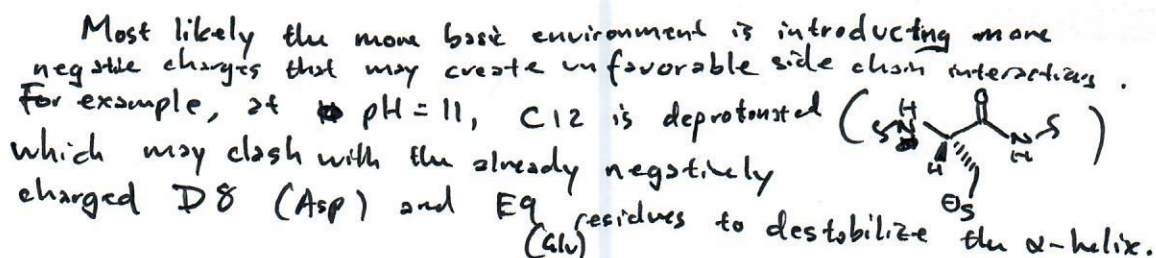 Most likely the more basic environment is introducting more
negative charges that may create unfavorable side chain interactions.
For example, at pH = 11, C12 is deprotonated ( H N H O N H ⊖S )
which may clash with the already negatively
charged D8 (Asp) and E9 (Glu) residues to destabilize the α-helix.